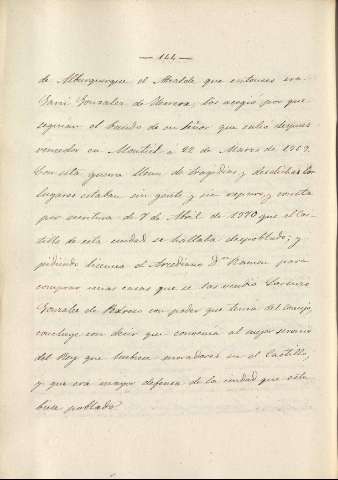 — 144 —
de Alburquerque el Alcalde que entonces era
Garci Gonzalez de Herrera, los acogió por que
seguian el bando de su Señor que salio despues
vencedor en Montiel a 22 de Marzo de 1369.
Con esta guerra llena de tragedias y desdichas los
lugares estaban sin gente y sin reparo, y consta
por escritura de 7 de Abril de 1370 que el Cas-
tillo de esta ciudad se hallaba despoblado; y
pidiendo licencia el Arcediano Dn Ramon para
comprar unas casas que se las vendio Lorenzo
Gonzalez de Pedroso con poder que tenia del Concejo,
concluye con decir que convenia al mejor servicio
del Rey que hubiese moradores en el Castillo,
y que era mayor defensa de la ciudad que estu-
biese poblado.